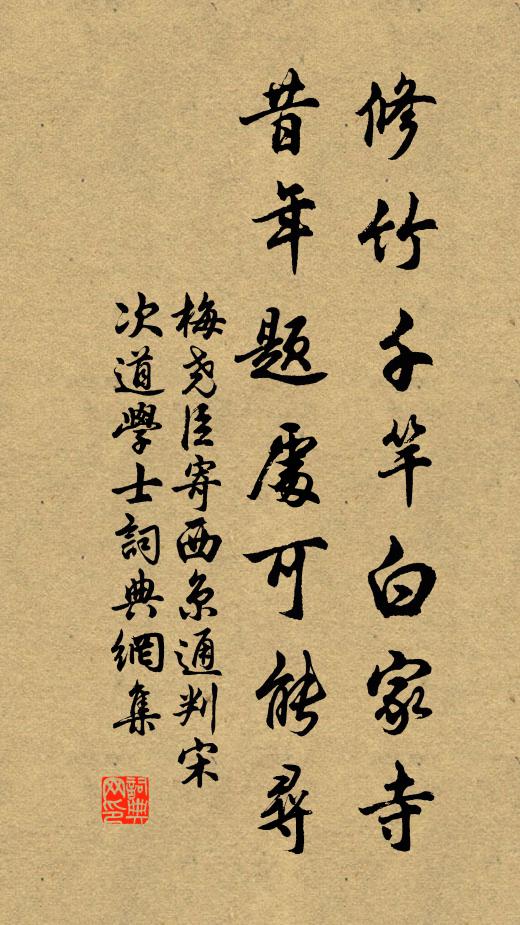 修竹千竿白家寺
昔年題處可能尋
梅堯臣寄西京通判宋
次道學士詞典網集
詞典
网印